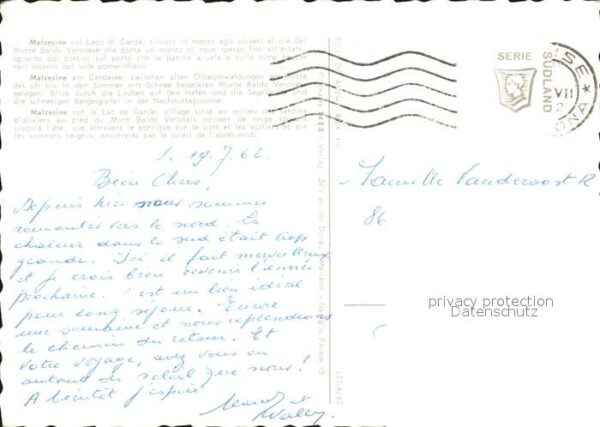 Malcesine sul Lago di Garda, situato in mezzo agli uliveti al piè del
Monte Baldo Veronese che porta un manto di neve spesso fino all'estate
sguardo dai portici sul porto con le barche a vela e sulle cime
nell'incanto del sole pomeridiano.
Malcesine am Gardasee, zwischen alten Ölbaumwaldungen am
des oft bis in den Sommer mit Schnee bedeckten Monte Baldo
gelegen. Blick durch die Lauben auf den Hafen und die
die schneeigen Bergesgipfel in der Nachmittagssonne.
Malcesine sur le Lac de Garde, village situé au milieu des
d'oliviers au pied du Mont Baldo Veronais couvert de neige
jusqu'à l'été: vue à travers le portique sur le port et les voiliers et sur
les sommets neigeux, ensoleillés par le soleil de l'après-midi.
SERIE
SÜDLAND
VII
ONA
19.7.62
Bien Chers,
Depuis hier nous sommes
remontés vers le nord. La
chaleur dans le sud était trop
grande. Ici il fait merveilleux
et je crois bien revenir l'année
prochaine. C'est un lieu idéal
pour long séjour. Encore
une semaine et nous reprendrons
le chemin du retour. Et
votre voyage, avez vous eu
autant de soleil que nous!
A bientôt j'espère
et
Famille Vandervoost R
86
privacy protection
Datenschutz